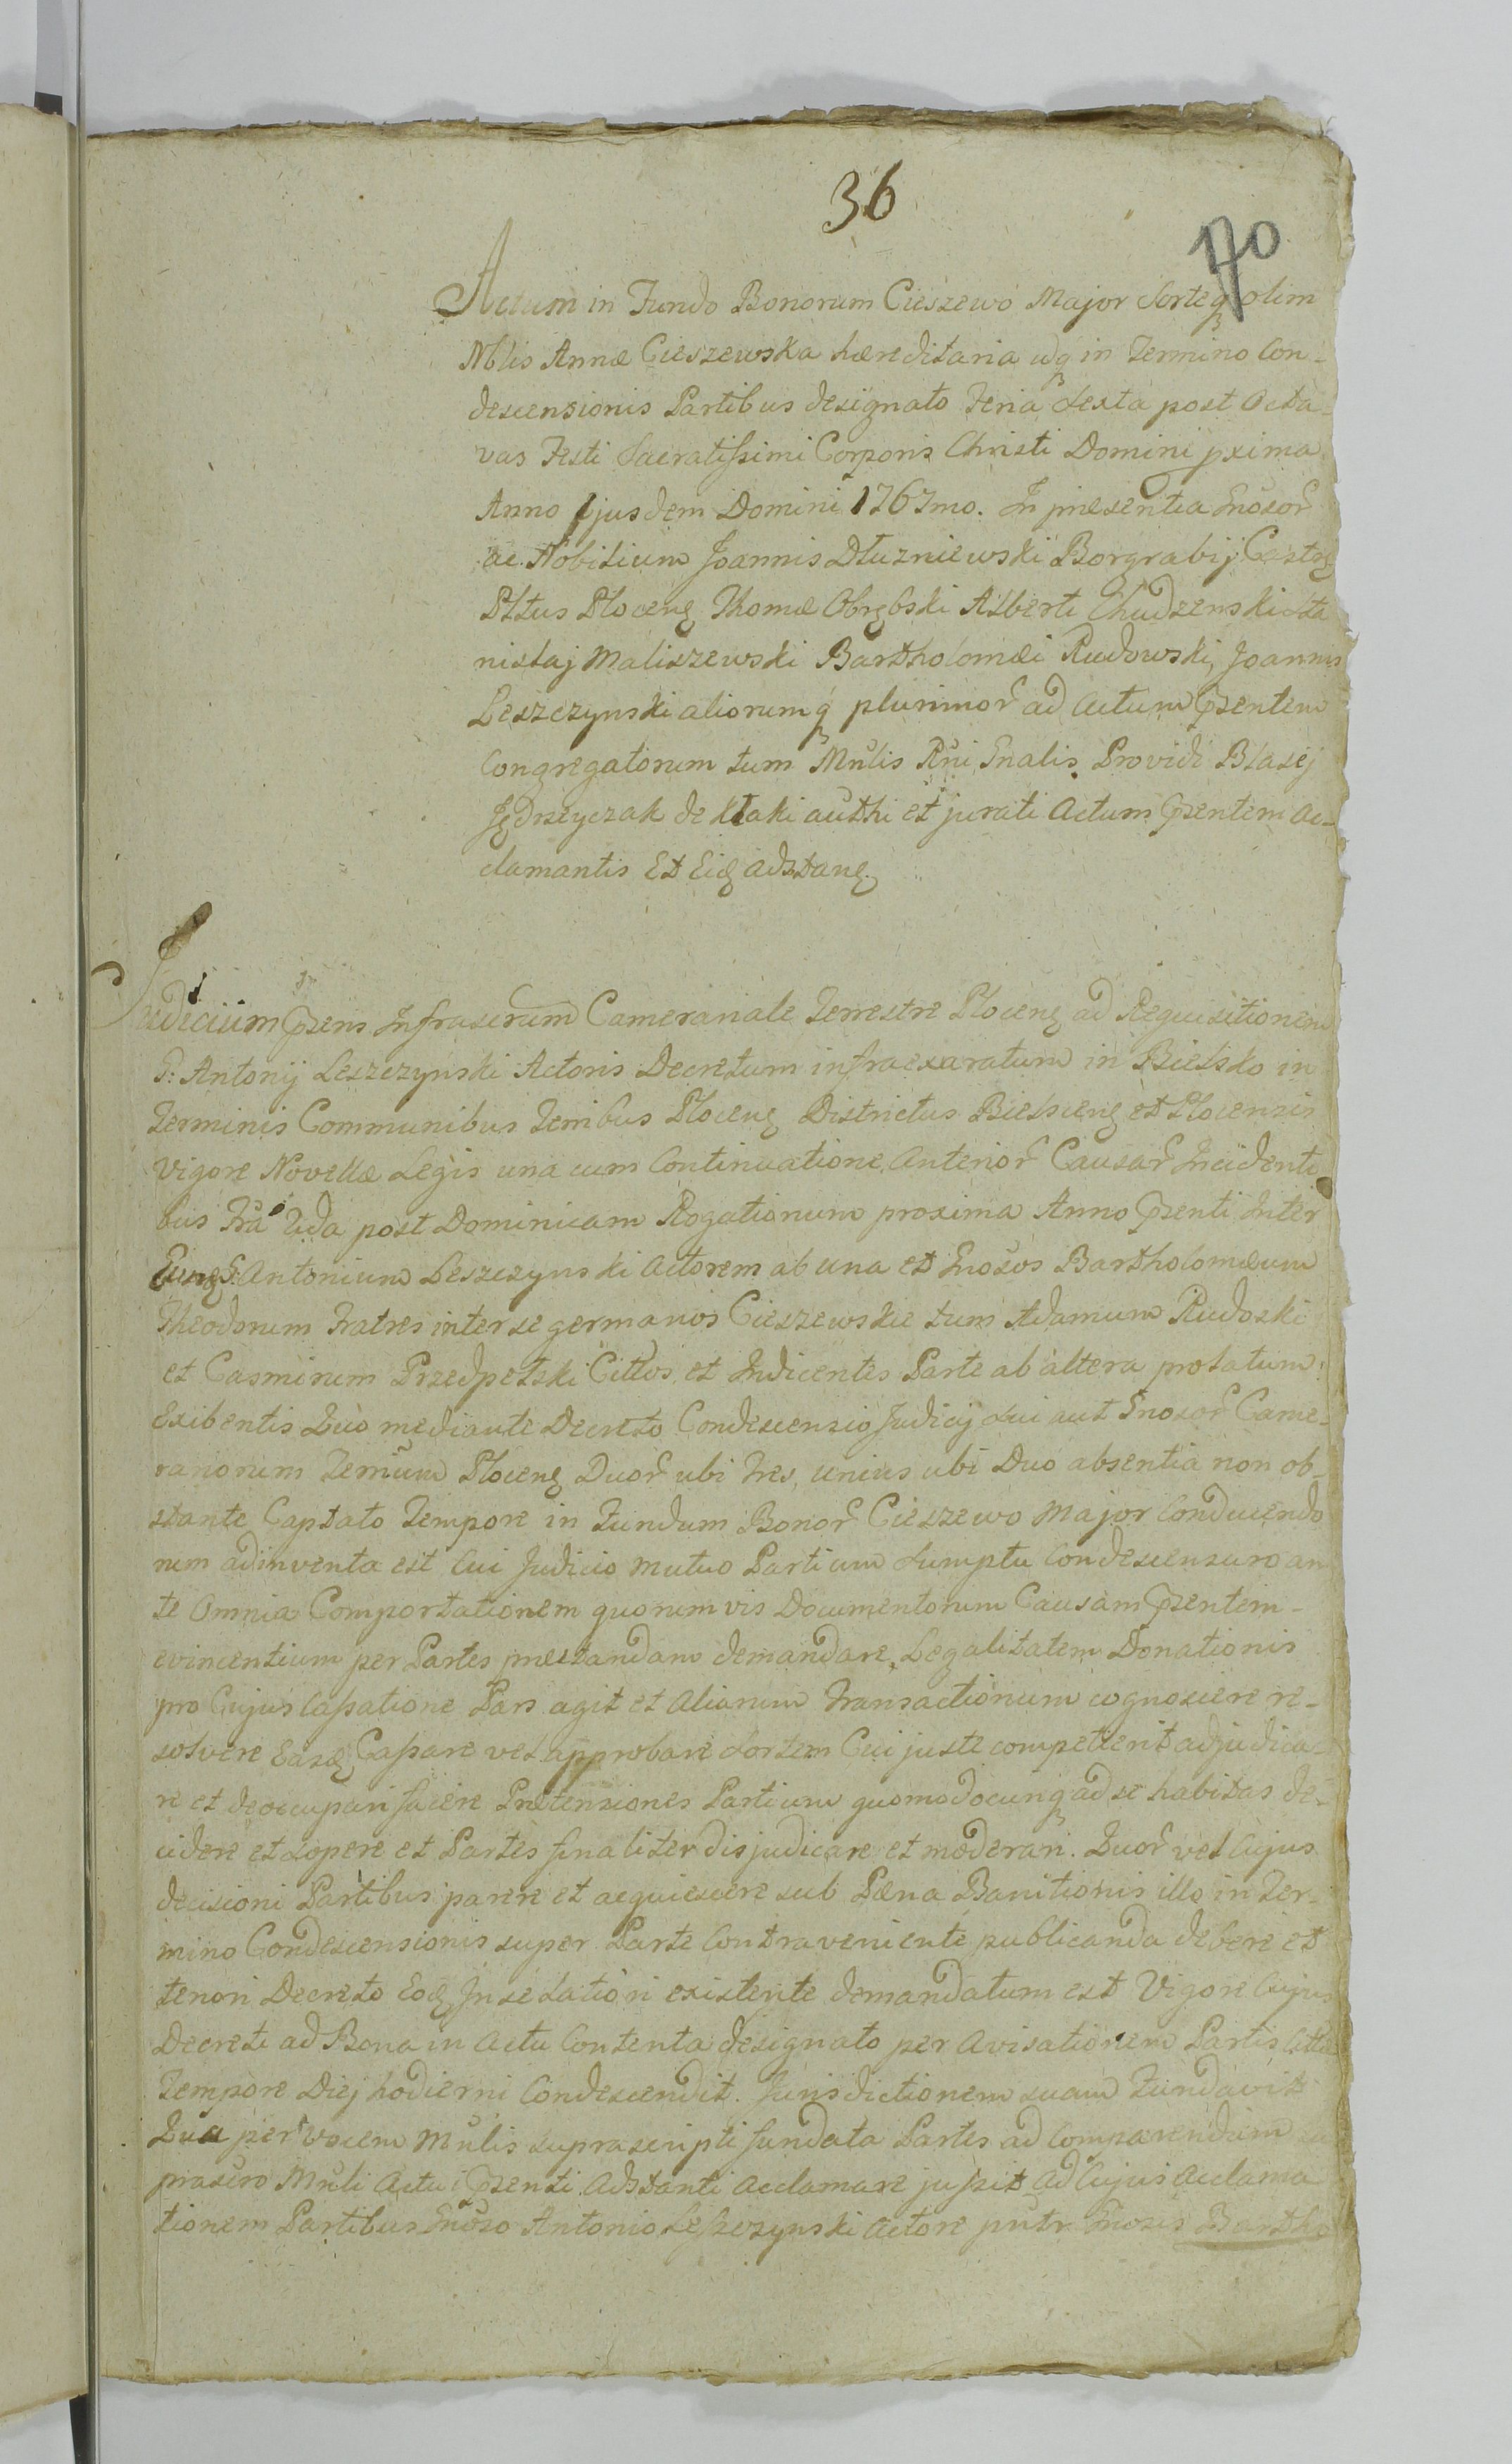 36
170
Actum in Fundo Bonorum Cieszewo Major Sorteq olim
Nblis Annæ Cieszewska hæreditaria idq in Termino Con-
descensionis Partibus designato Feria Sexta post Octa-
vas Festi Sacratissimi Corporis Christi Domini pxima
Anno Ejusdem Domini 1767mo. In præsentia Gnosor
ac Nobilium Joannis Dłuzniewski Borgrabij Castr
Pltus Plocen Thomæ Obrębski Alberti Chudzenski Sta
nislaj Maliszewski Bartholomæi Rudowski, Joannis
Leszczynski aliorumq plurimor ad Actum Psentem
Congregatorum tum Mnlis Rni Gnalis Providi Blasij
Jędrzyczak de Kłaki authi et jurati Actum Psentem Ac-
clamantis Et Eid adstan
Judicium Psens Infrascrum Cameranale Terrestre Plocen ad Requisitionem
G: Antonij Leszczynski Actoris Decretum infraexaratum in Bielsko in
Terminis Communibus Terribus Plocen Districtus Bielscen et Plocensis
Vigore Novellæ Legis una cum Continuatione Anterior Causar Incidenti
bus Fra 2da post Dominicam Rogationum proxima Anno Psenti Inter
Eund G. Antonium Leszczynski Actorem ab una et Gnosos Bartholomæum
Theodorum Fratres inter se germanos Cieszewskie tum Adamum Rudoski
et Casmirum Przedpełski Cittos et Indicentes Parte ab altera prolatum
Exibentis Quo mediante Decreto Condescensio Judicij Sui aut Gnosor Came-
rariorum Terrium Plocen Duor ubi Tres, unius ubi Duo absentia non ob-
stante Captato Tempore in Fundum Bonor Cieszewo Major Conducendo
rum adinventa est Cui Judicio mutuo Partium Sumptu Condescensuro an
te Omnia Comportationem quorumvis Documentorum Causam Psentem
evincentium per Partes præstandam demandare, Legalitatem Donationis
pro Cujus Cassatione Pars agit et Aliarum Transactionum cognoscere re-
solvere Easd Cassare vel approbare Sortem Cui juste competierit adjudica
re et deoccupari facere Prætensiones Partium quomodocunq ad se habitas de-
cidere et Sopere et Partes finaliter disjudicare et moderari. Quor vel Cujus
decisioni Partibus parere et acquiescere sub Pæna Banitionis illo in Ter-
mino Condescensionis super Parte Contraveniente publicanda debere et
teneri Decreto Eod In se Latiori existente demandatum est Vigore Cujus
Decreti ad Bona in Actu Contenta designato per Avisationem Partis Cittæ
Tempore Diej hodierni Condescendit. Jurisdictionem suam Fundavit
Qua per vocem Mnlis suprascripti fundata Partes ad Comparendum su
prascro Mnli Actui Psenti Adstanti Acclamare jussit Ad Cujus Acclama
tionem Partibus Gnoso Antonio Leszczynski Actore pntr Gnosis Bartho